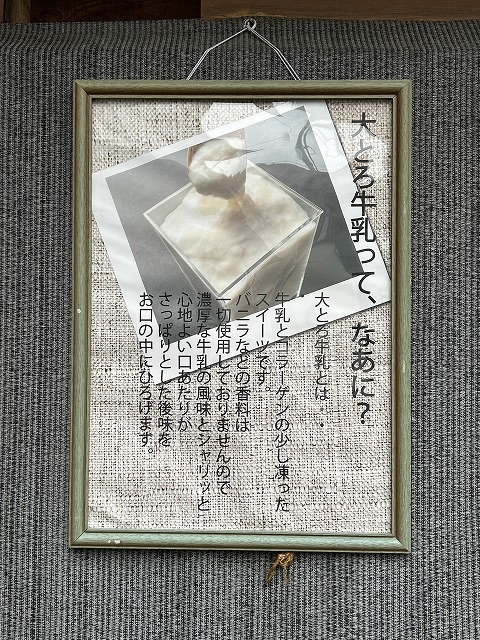 大とろ牛乳って、なあに？
大とろ牛乳とは・・
牛乳とコラーゲンの少し凍った
スイーツです。
バニラなどの香料は
一切使用しておりませんので
濃厚な牛乳の風味とシャリッと
心地よい口あたりが
さっぱりとした後味を
お口の中にひろげます。